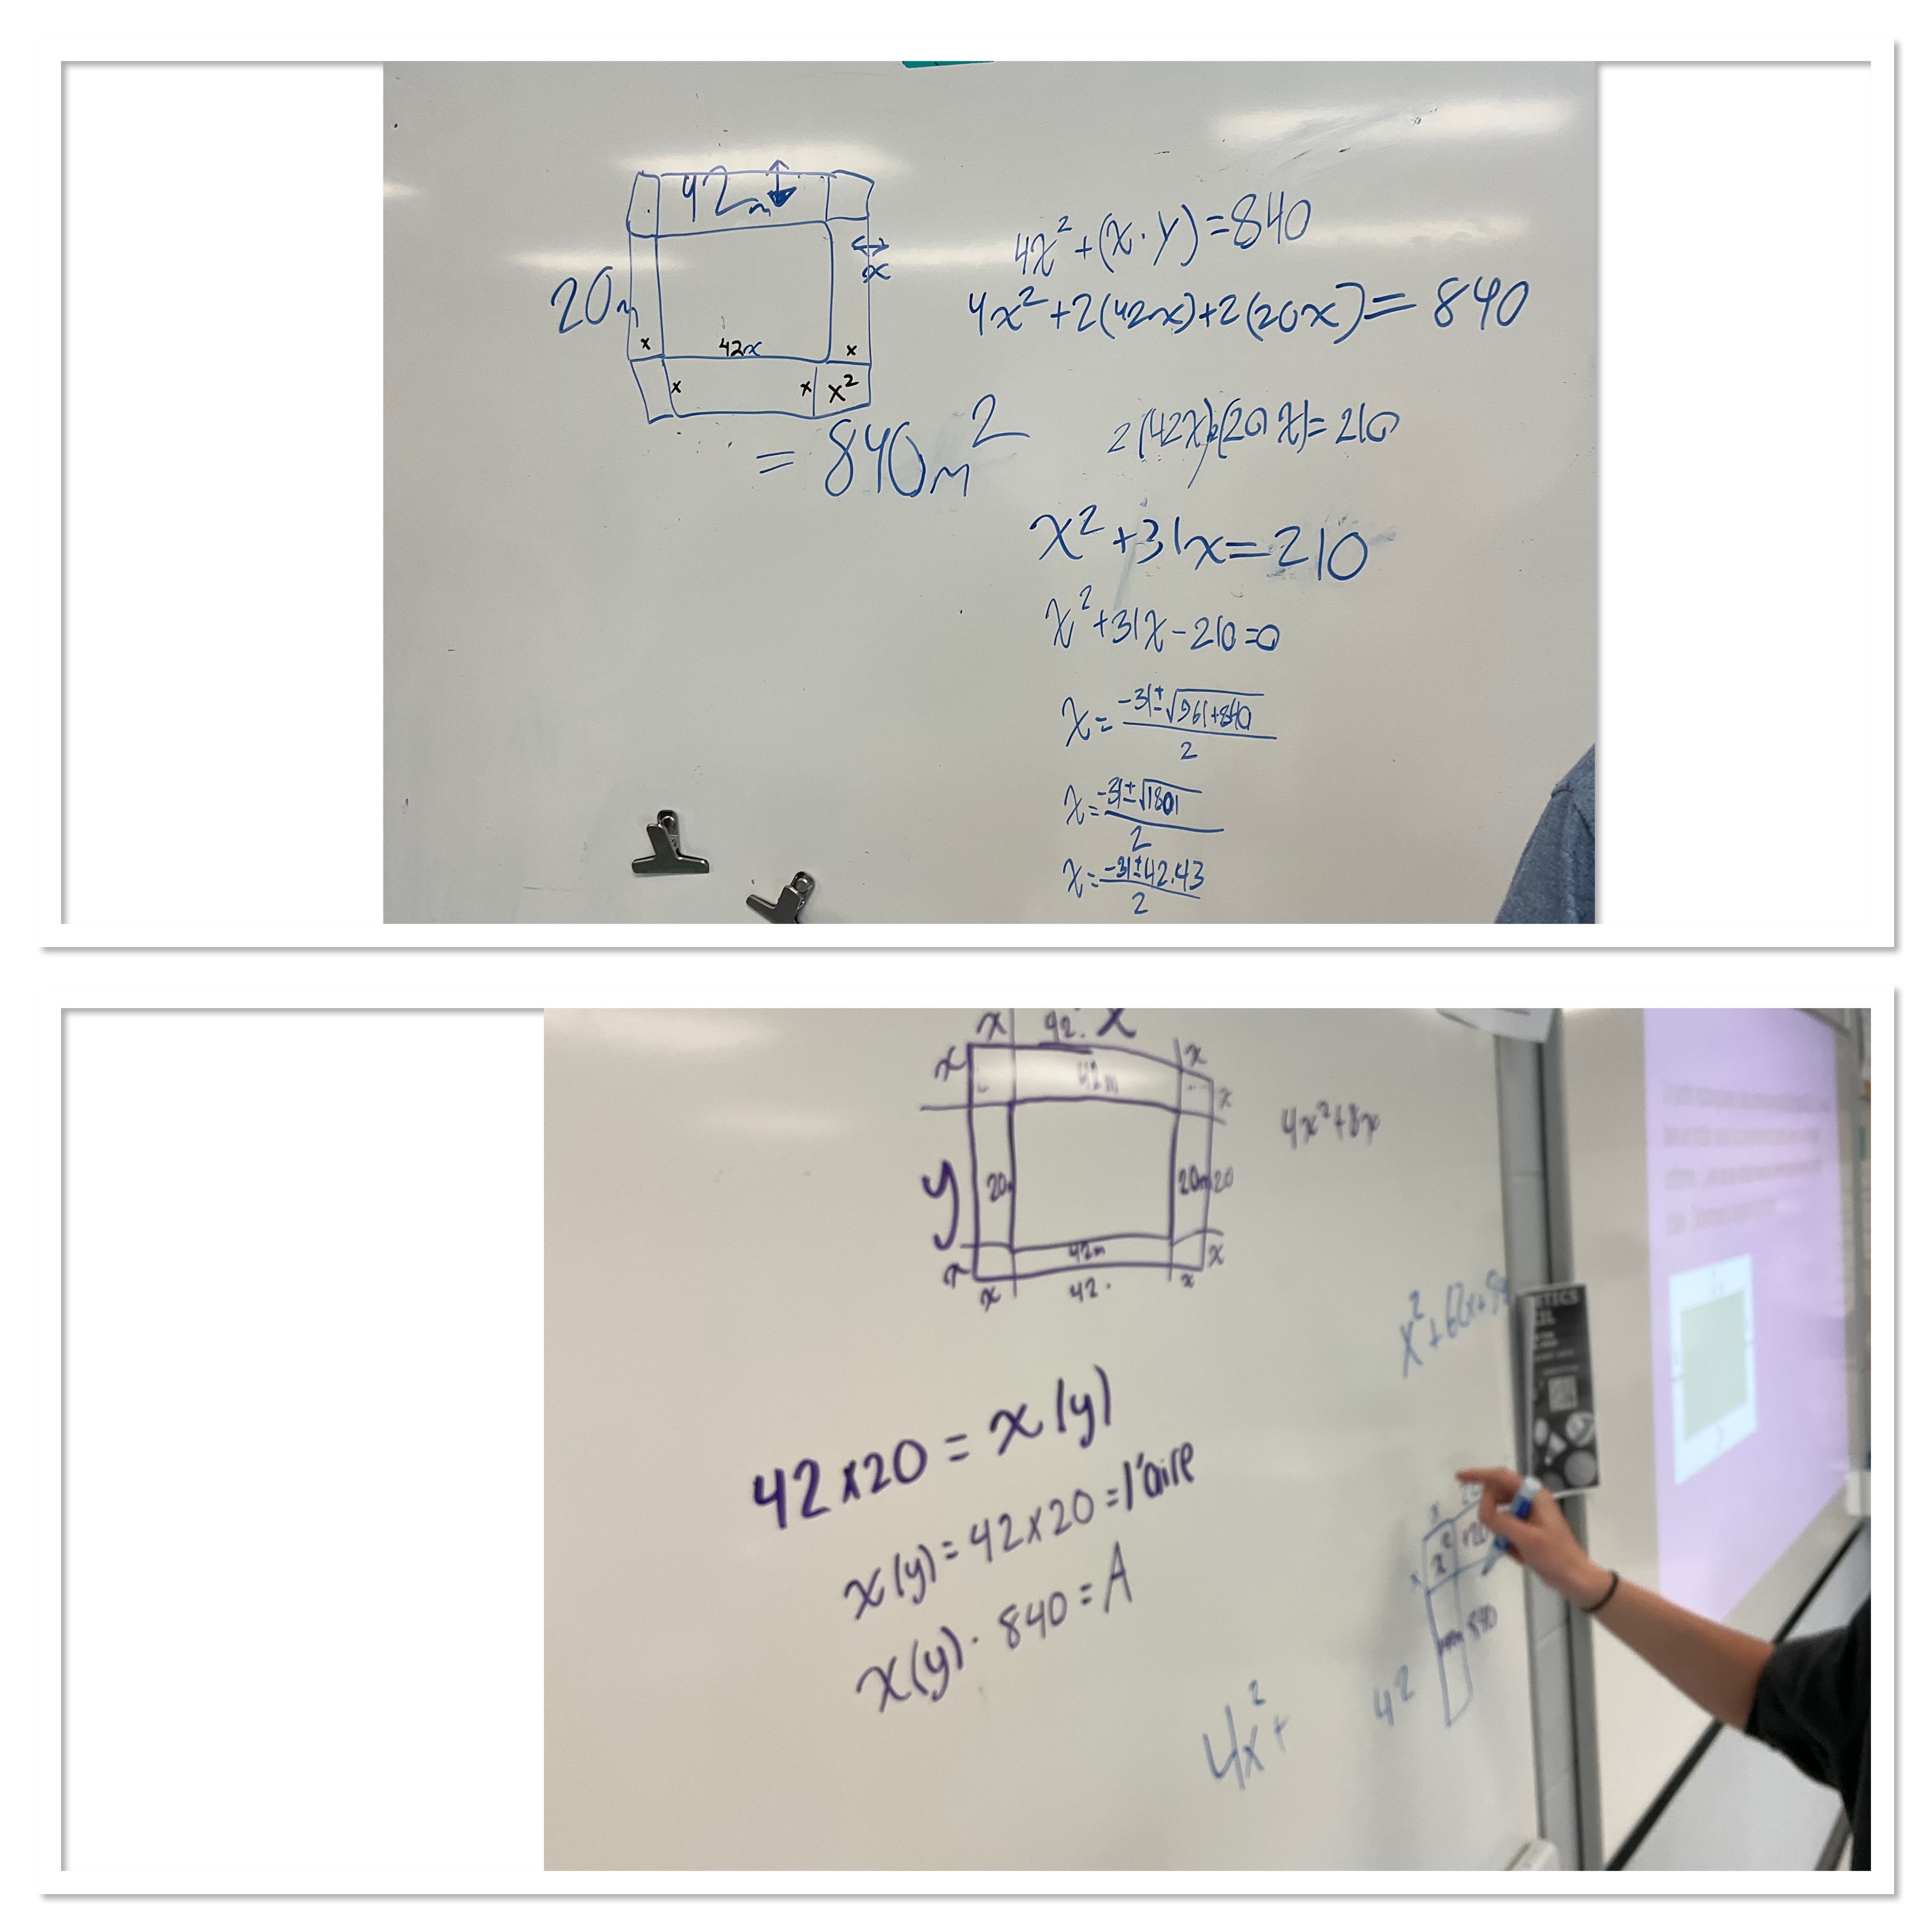 42m
x
20m
x 42x x
x x x²
= 840m²
4x²+(x·y)=840
4x²+2(42x)+2(20x)=840
x²+31x=210
x²+31x-210=0
x=-31±√961+840
2
x=-31±√1801
2
x=-31±42.43
2
x x
x 42m x
x
y 20 20m 20
42m x
x x 42. x
4x²+8x
42x20=x(y)
x(y)=42x20=l'aire
x(y)· 840=A
4x²+
x
x x²
840
42